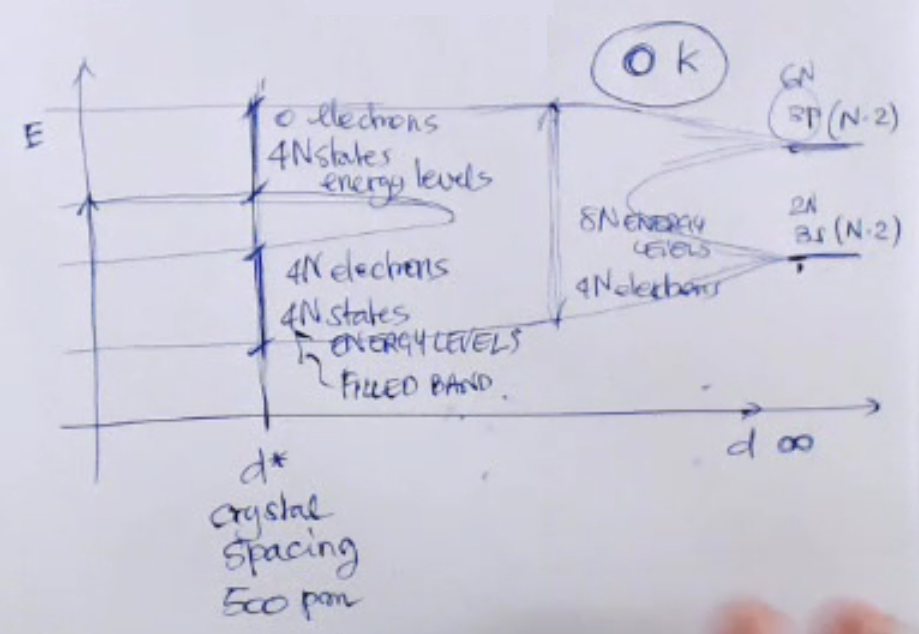 0 K
6N
3P (N·2)
E
0 electrons
4N states
energy levels
2N
3s (N·2)
8N ENERGY
LEVELS
4N electrons
4N electrons
4N states
ENERGY LEVELS
FILLED BAND.
d ∞
d*
crystal
spacing
500 pm